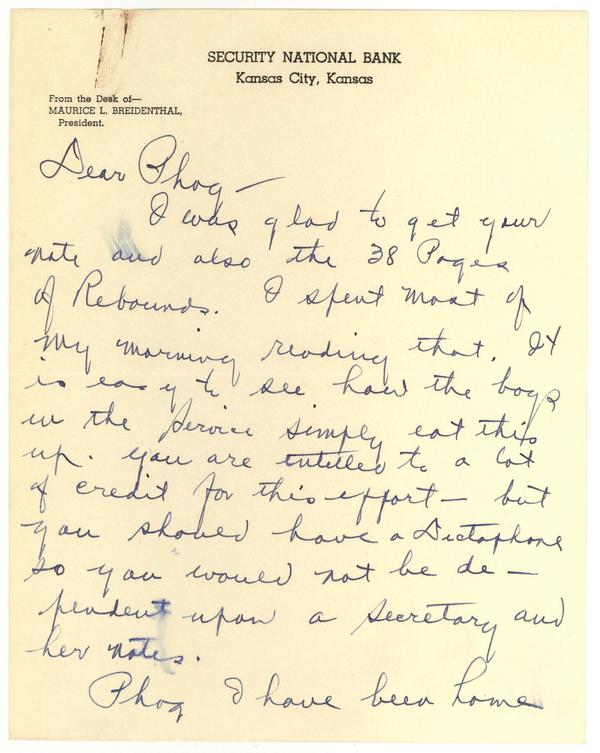 SECURITY NATIONAL BANK
Kansas City, Kansas
From the Desk of—
MAURICE L. BREIDENTHAL,
President.
Dear Phog —
I was glad to get your
note and also the 38 Pages
of Rebounds. I spent most of
my morning reading that. It
is easy to see how the boys
in the service simply eat this
up. you are entitled to a lot
of credit for this effort — but
you should have a Dictaphone
so you would not be de —
pendent upon a secretary and
her notes.
Phog I have been home